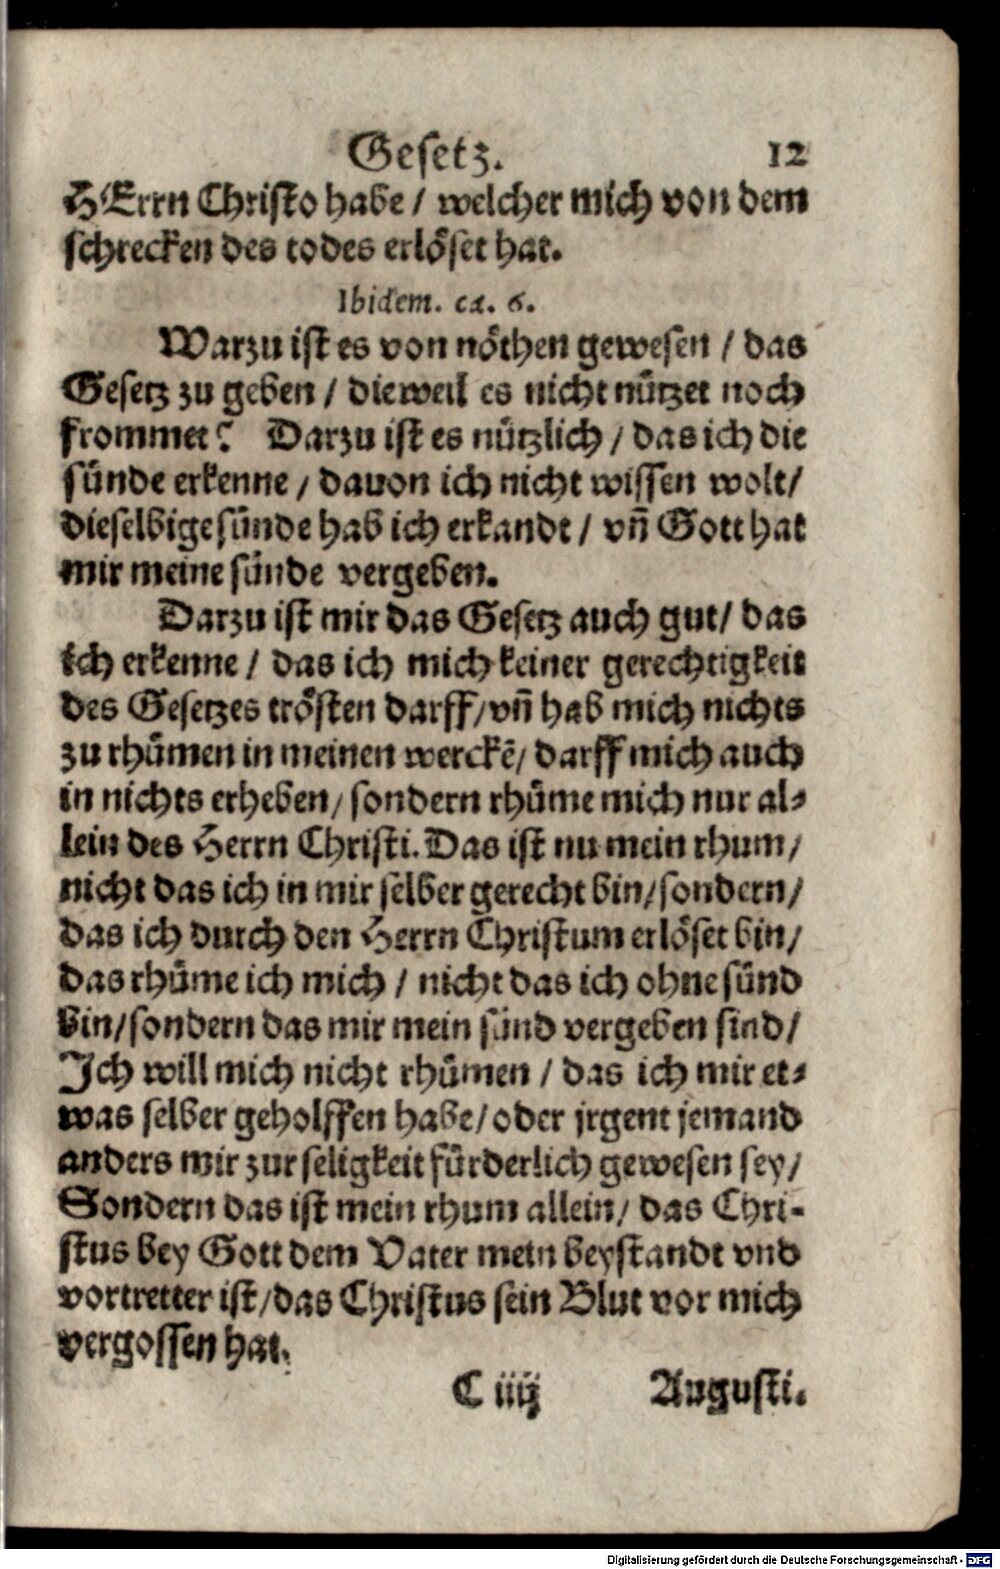 Gesetz. 12
HErrn Christo habe / welcher mich von dem
schrecken des todes erlöset hat.
Ibidem. ca. 6.
Warzu ist es von nöthen gewesen / das
Gesetz zu geben / dieweil es nicht nützet noch
frommet? Darzu ist es nützlich / das ich die
sünde erkenne / dauon ich nicht wissen wolt/
dieselbige sünde hab ich erkandt / vñ Gott hat
mir meine sünde vergeben.
Darzu ist mir das Gesetz auch gut/ das
ich erkenne / das ich mich keiner gerechtigkeit
des Gesetzes trösten darff/vñ hab mich nichts
zu rhümen in meinen werckē/ darff mich auch
in nichts erheben/ sondern rhüme mich nur al-
lein des Herrn Christi. Das ist nu mein rhum/
nicht das ich in mir selber gerecht bin/sondern/
das ich durch den Herrn Christum erlöset bin/
das rhüme ich mich / nicht das ich ohne sünd
bin/sondern das mir mein sünd vergeben sind/
Ich will mich nicht rhümen / das ich mir et-
was selber geholffen habe/oder jrgent jemand
anders mir zur seligkeit fürderlich gewesen sey/
Sondern das ist mein rhum allein/ das Chri-
stus bey Gott dem Vater mein beystandt vnd
vortretter ist/das Christus sein Blut vor mich
vergossen hat.
C iiij Augusti.
Digitalisierung gefördert durch die Deutsche Forschungsgemeinschaft - DFG